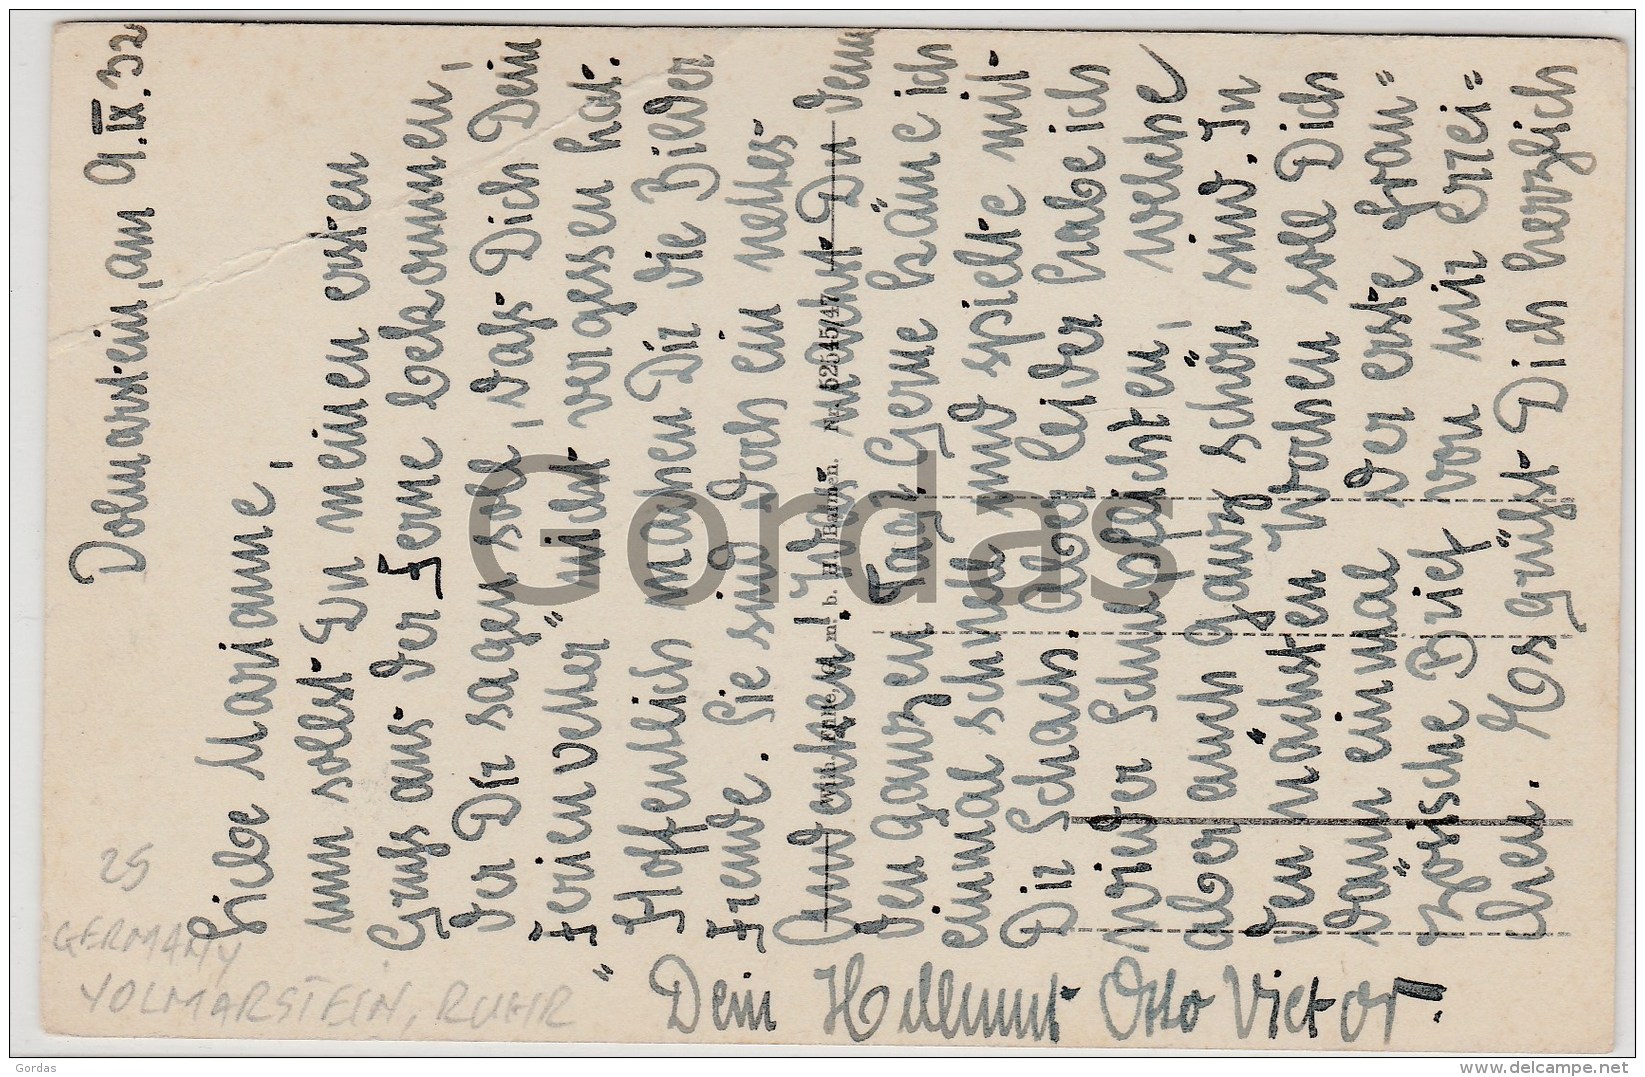 Volmarstein, am 9.IX.32
Liebe Marianne,
nun sollst Du meinen ersten
Gruß aus der Ferne bekommen,
der Dir sagen soll, daß Dich Dein
"Ferienvetter" nicht vergessen hat.
Hoffentlich machen Dir die Bilder
Freude. Sie sind doch ein nettes
Andenken! Was machst Du denn
den ganzen Tag. Gerne käme ich
einmal schnell und spielte mit
Dir Schach. aber leider habe ich
wieder Schulpflichten, welche
aber auch ganz schön sind. In
den nächsten Wochen soll Dich
dann einmal der erste fran=
zösische Brief von mir errei=
chen. Es grüßt Dich herzlich
Dein Hellmut Otto Victor.
Wilh. m. b. H., Barmen. Nr. 52545/47
25
GERMANY
VOLMARSTEIN, RUHR
Gordas
Gordas
delcampe.net